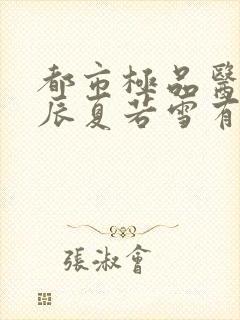 都市極品醫
辰夏若雪有
張淑會